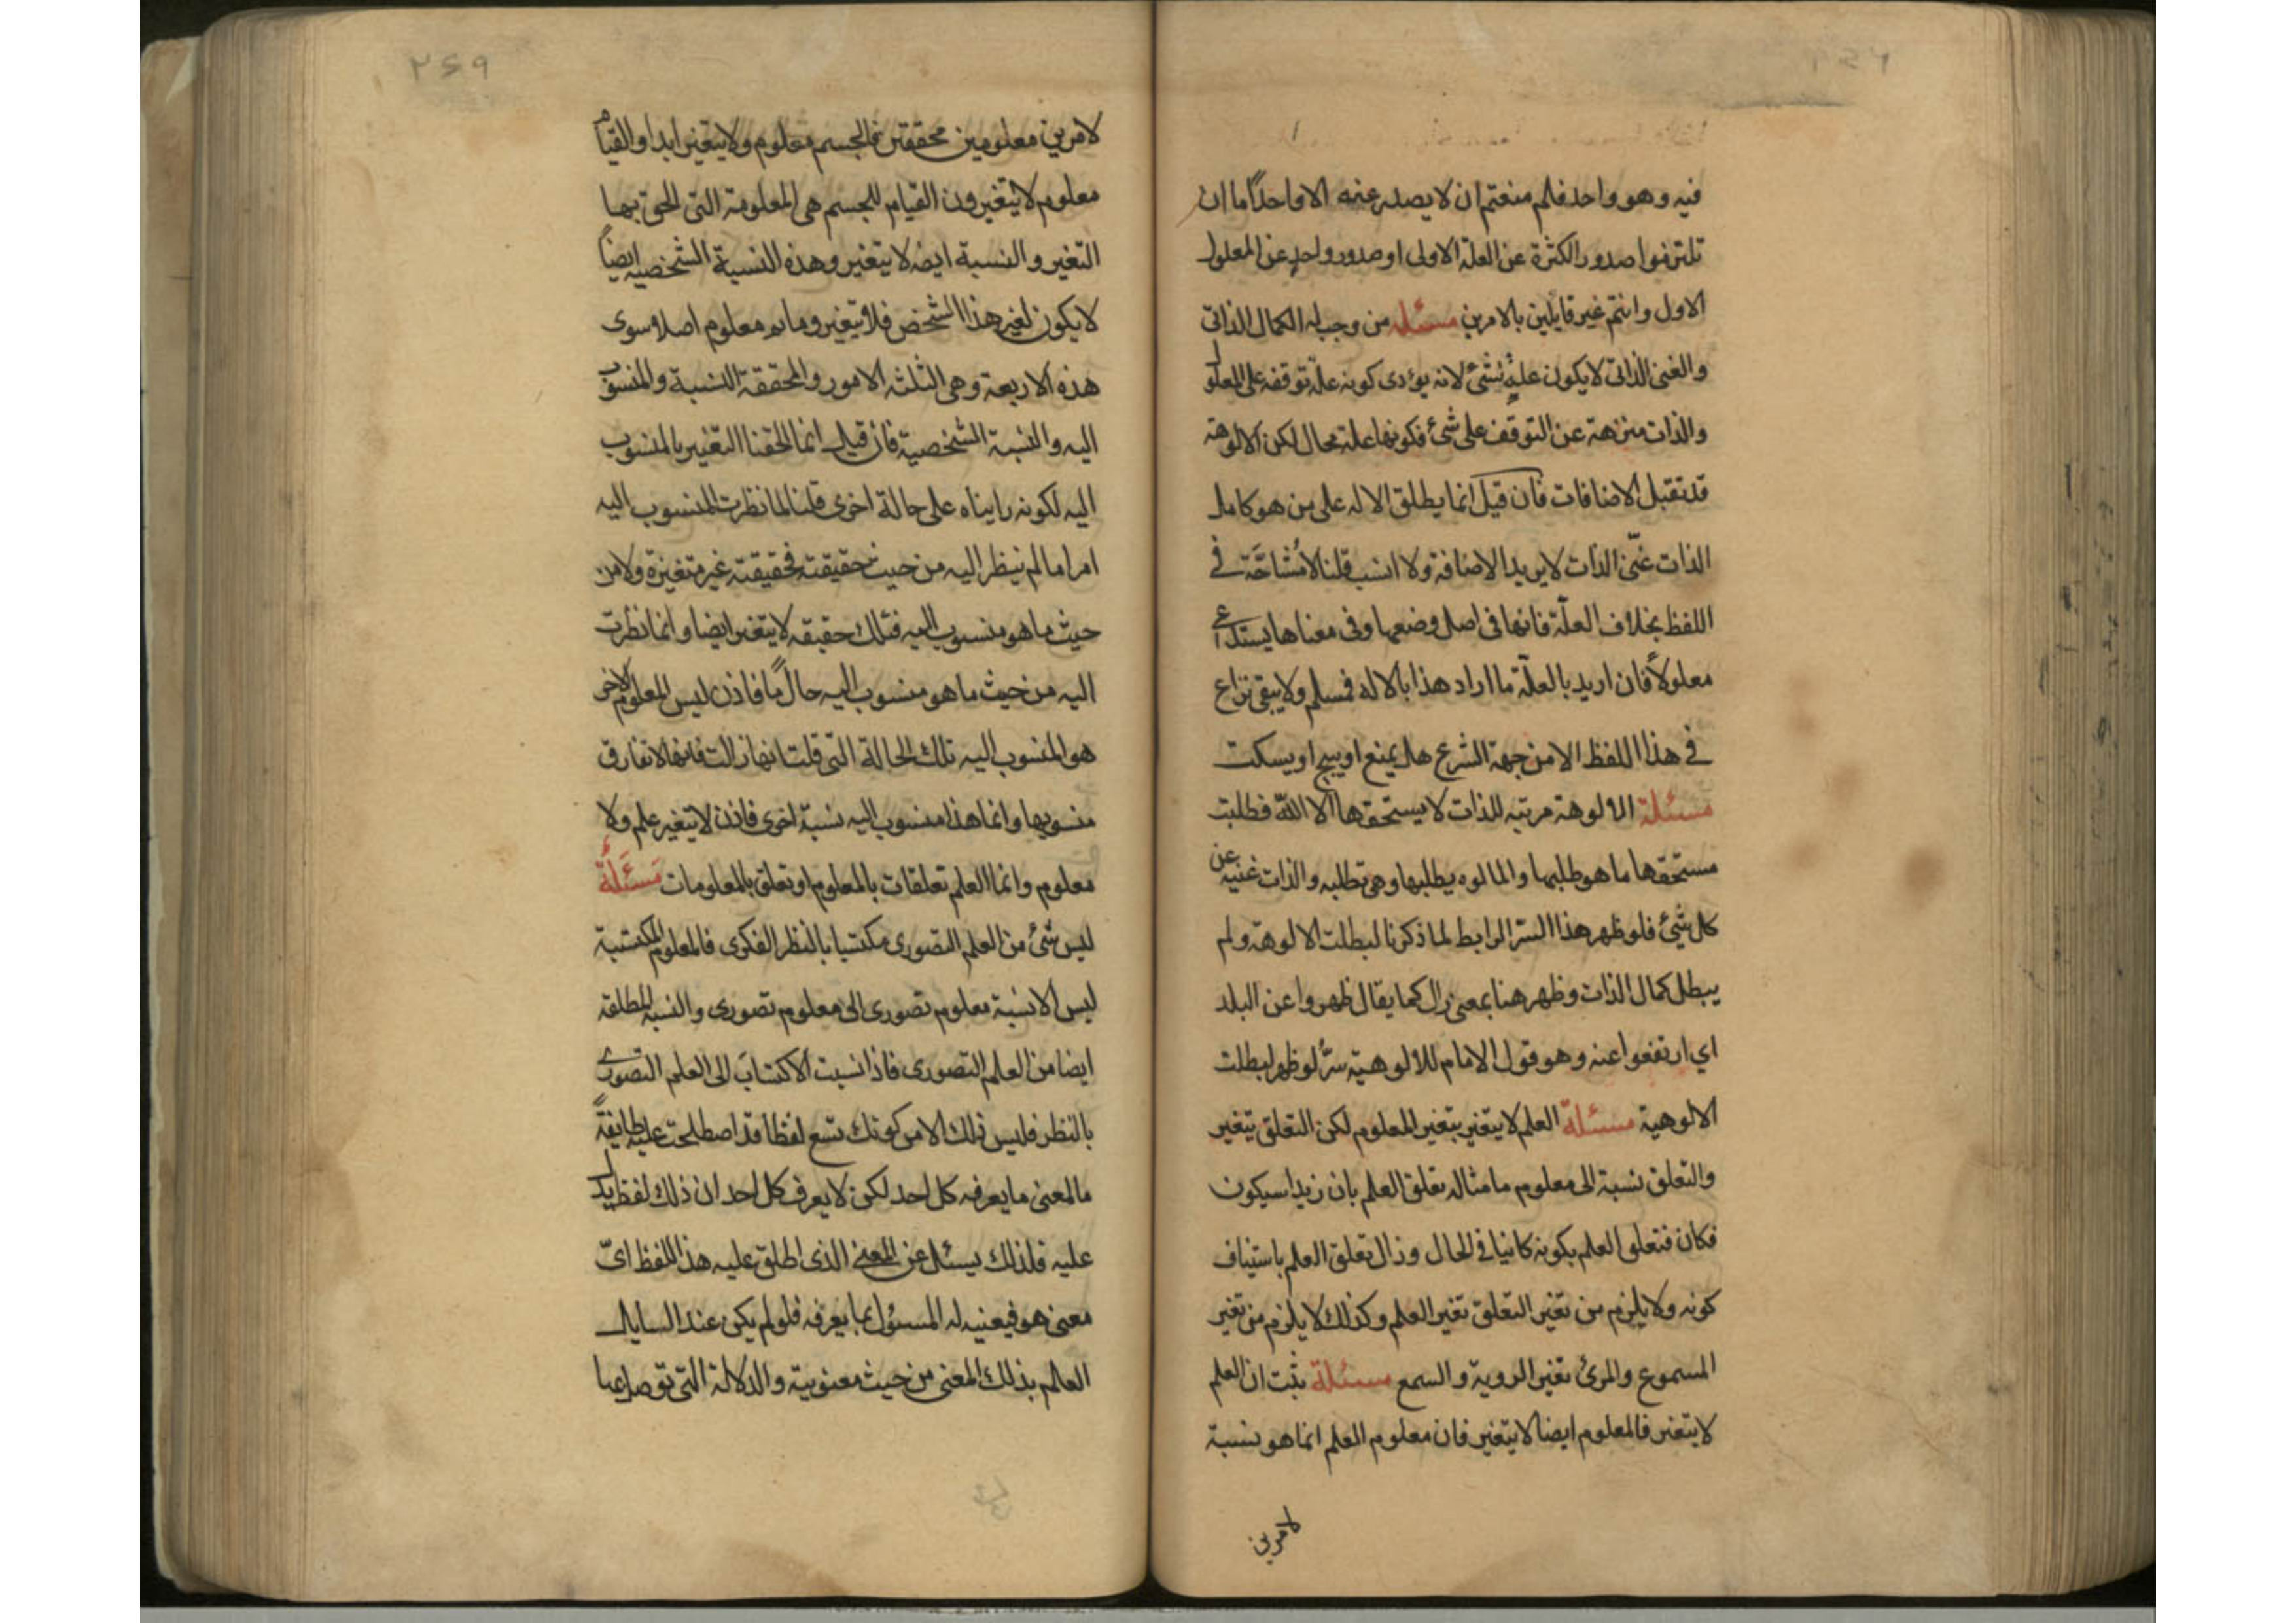 فيه وهو واحد فلم منعتم ان لا يصدر عنه الا واحد اما ان
تلتزموا صدور الكثرة عن العلة الاولى او صدور واحد عن المعلول
الاول وانتم غير قايلين بالامرين مسئلة من وجب له الكمال الذاتى
والغنى الذاتى لا يكون علة لشئ لانه يؤدى كونه علة توقفه على المعلول
والذات منزهة عن التوقف على شئ فكونها علة محال لكن الالوهة
قد تقبل الاضافات فان قيل انما يطلق الاله على من هو كامل
الذات غنى الذات لا يريد الاضافة ولا النسب قلنا لا مشاحة فى
اللفظ بخلاف العلة فانها فى اصل وضعها وفى معناها يستدعى
معلولا فان اريد بالعلة ما اراد هذا بالاله فمسلم ولا يبقى نزاع
فى هذا اللفظ الا من جهة الشرع هل يمنع او يبيح او يسكت
مسئلة الالوهة مرتبه للذات لا يستحقها الا الله فطلبت
مستحقها ما هو طلبها والمالوه يطلبها وهى تطلبه والذات غنيه عن
كل شئ فلو ظهر هذا السر الرابط لما ذكرنا لبطلت الالوهة ولم
يبطل كمال الذات وظهر هنا بمعنى زال كما يقال ظهروا عن البلد
اي ارتفعوا عنه وهو قول الامام للالوهية سر لو ظهر لبطلت
الالوهية مسئلة العلم لا يتغير بتغير المعلوم لكن التعلق يتغير
والتعلق نسبة الى معلوم ما مثاله تعلق العلم بان زيدا سيكون
فكان فتعلق العلم بكونه كاينا فى الحال وزال تعلق العلم باستيناف
كونه ولا يلزم من تغير التعلق تغير العلم وكذلك لا يلزم من تغير
المسموع والمرئ تغير الروية والسمع مسئلة ثبت ان العلم
لا يتغير فالمعلوم ايضا لا يتغير فان معلوم العلم انما هو نسبة
لامرين
٢۶٩
لامرين معلومين محققتين فالجسم معلوم ولا يتغير ابدا والقيام
معلوم لا يتغير ون القيام للجسم هى المعلومة التى الحق بها
التغير والنسبة ايضا لا يتغير وهذه النسبة الشخصيه ايضا
لا يكون لغير هذا الشخص فلا يتغير وما ثم معلوم اصلا سوى
هذه الاربعة وهى الثلثه الامور والمحققة النسبة والمنسوب
اليه والنسبة الشخصية فان قيل انما الحقنا التغير بالمنسوب
اليه لكونه رايناه على حالة اخرى قلنا لما نظرت المنسوب اليه
امرا ما لم ينظر اليه من حيث حقيقته فحقيقته غير متغيرة ولا من
حيث ما هو منسوب اليه فتلك حقيقه لا يتغير ايضا وانما نظرت
اليه من حيث ما هو منسوب اليه حال ما فاذن ليس المعلوم الاخر
هو المنسوب اليه تلك الحالة التى قلت انها زالت فانها لا تفارق
منسوبها وانما هذا منسوب اليه نسبة اخرى فاذن لا يتغير علم ولا
معلوم وانما العلم تعلقات بالمعلوم او تعلق بالمعلومات مسئلة
ليس شئ من العلم التصورى مكتسبا بالنظر الفكرى فالمعلوم المكتسبة
ليس الا نسبة معلوم تصورى الى معلوم تصورى والنسبة المطلقه
ايضا من العلم التصورى فاذا نسبت الاكتساب الى العلم التصورى
بالنظر فليس ذلك الا من كونك تسمع لفظا قد اصطلحت عليه طايفة
ما لمعنى ما يعرفه كل احد لكن لا يعرف كل احد ان ذلك لفظ يدل
عليه فلذلك يسئل عن المعنى الذى اطلق عليه هذا اللفظ اى
معنى هو فيعنيه له المسئول بما يعرفه فلو لم يكن عند السايل
العلم بذلك المعنى من حيث معنويته والدلالة التى توصل بها